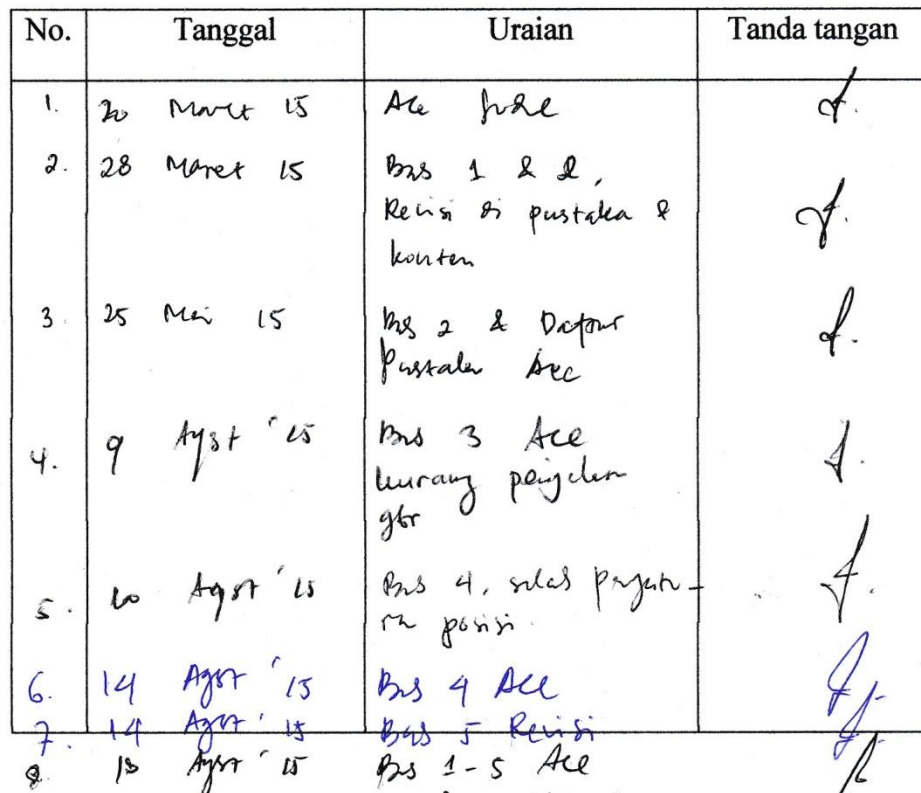 No. Tanggal Uraian Tanda tangan
1. 20 Maret 15 Acc
2. 28 Maret 15 Bab 1 & 2,
Revisi di pustaka &
konten
3. 25 Mei 15 Bab 2 & Daftar
Pustaka Acc
4. 9 Agst '15 Bab 3 Acc
kurang penjelasan
gbr
5. 10 Agst '15 Bab 4,
posisi
6. 14 Agst '15 Bab 4 Acc
7. 14 Agst '15 Bab 5 Revisi
8 Agst '15 Bab 1-5 Acc